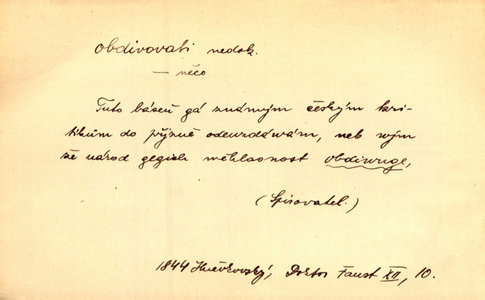 obdivovati nedok.
— něco
Tuto báseň gá známým českým kri-
tikům do přjzně odewzdáwám, neb wjm
že národ gegich wěhlasnost obdiwuge,
(Spisovatel.)
1844 Hněvkovský, Doktor Faust XII, 10.